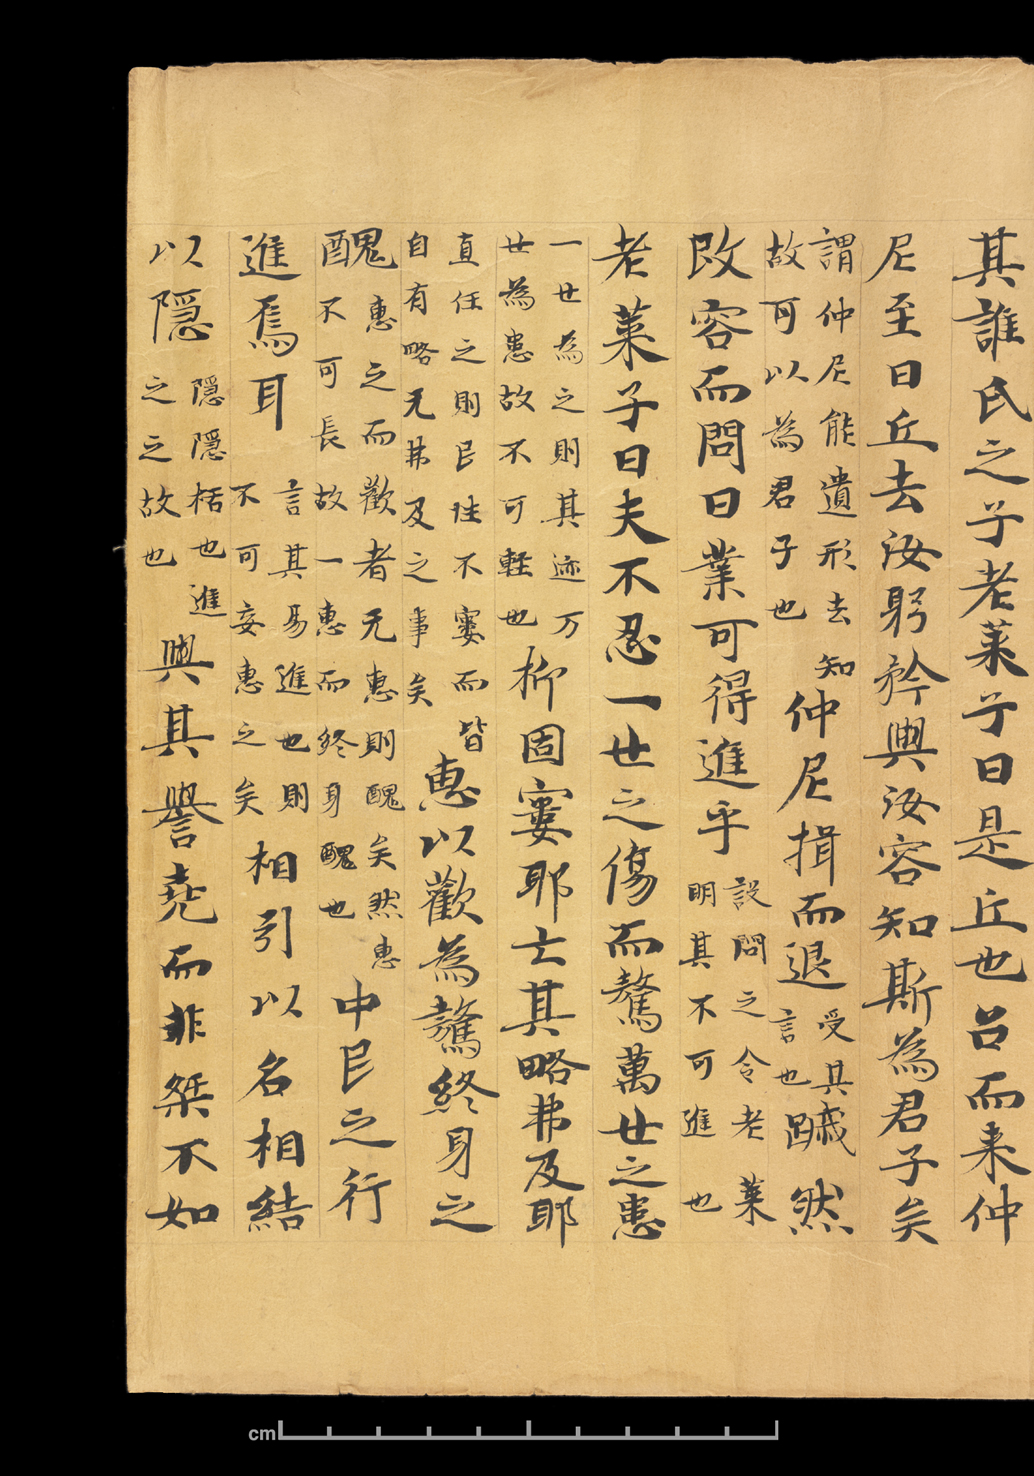 其誰氏之子老萊子曰是丘也召而来仲
尼至曰丘去汝躬矜與汝容知斯為君子矣
謂仲尼能遺形去知故可以為君子也仲尼揖而退受其言也䠞然
改容而問曰業可得進乎設問之令老萊明其不可進也
老萊子曰夫不忍一世之傷而驁萬世之患
一世為之則其迹万世為患故不可軽也抑固窶耶亡其略弗及耶
直任之則民性不窶而皆自有略无弗及之事矣惠以歡為驁終身之
醜惠之而歡者无惠則醜矣然惠不可長故一惠而終身醜也中民之行
進焉耳言其易進也則不可妄惠之矣相引以名相結
以隱隱隱栝也進之之故也與其譽堯而非桀不如